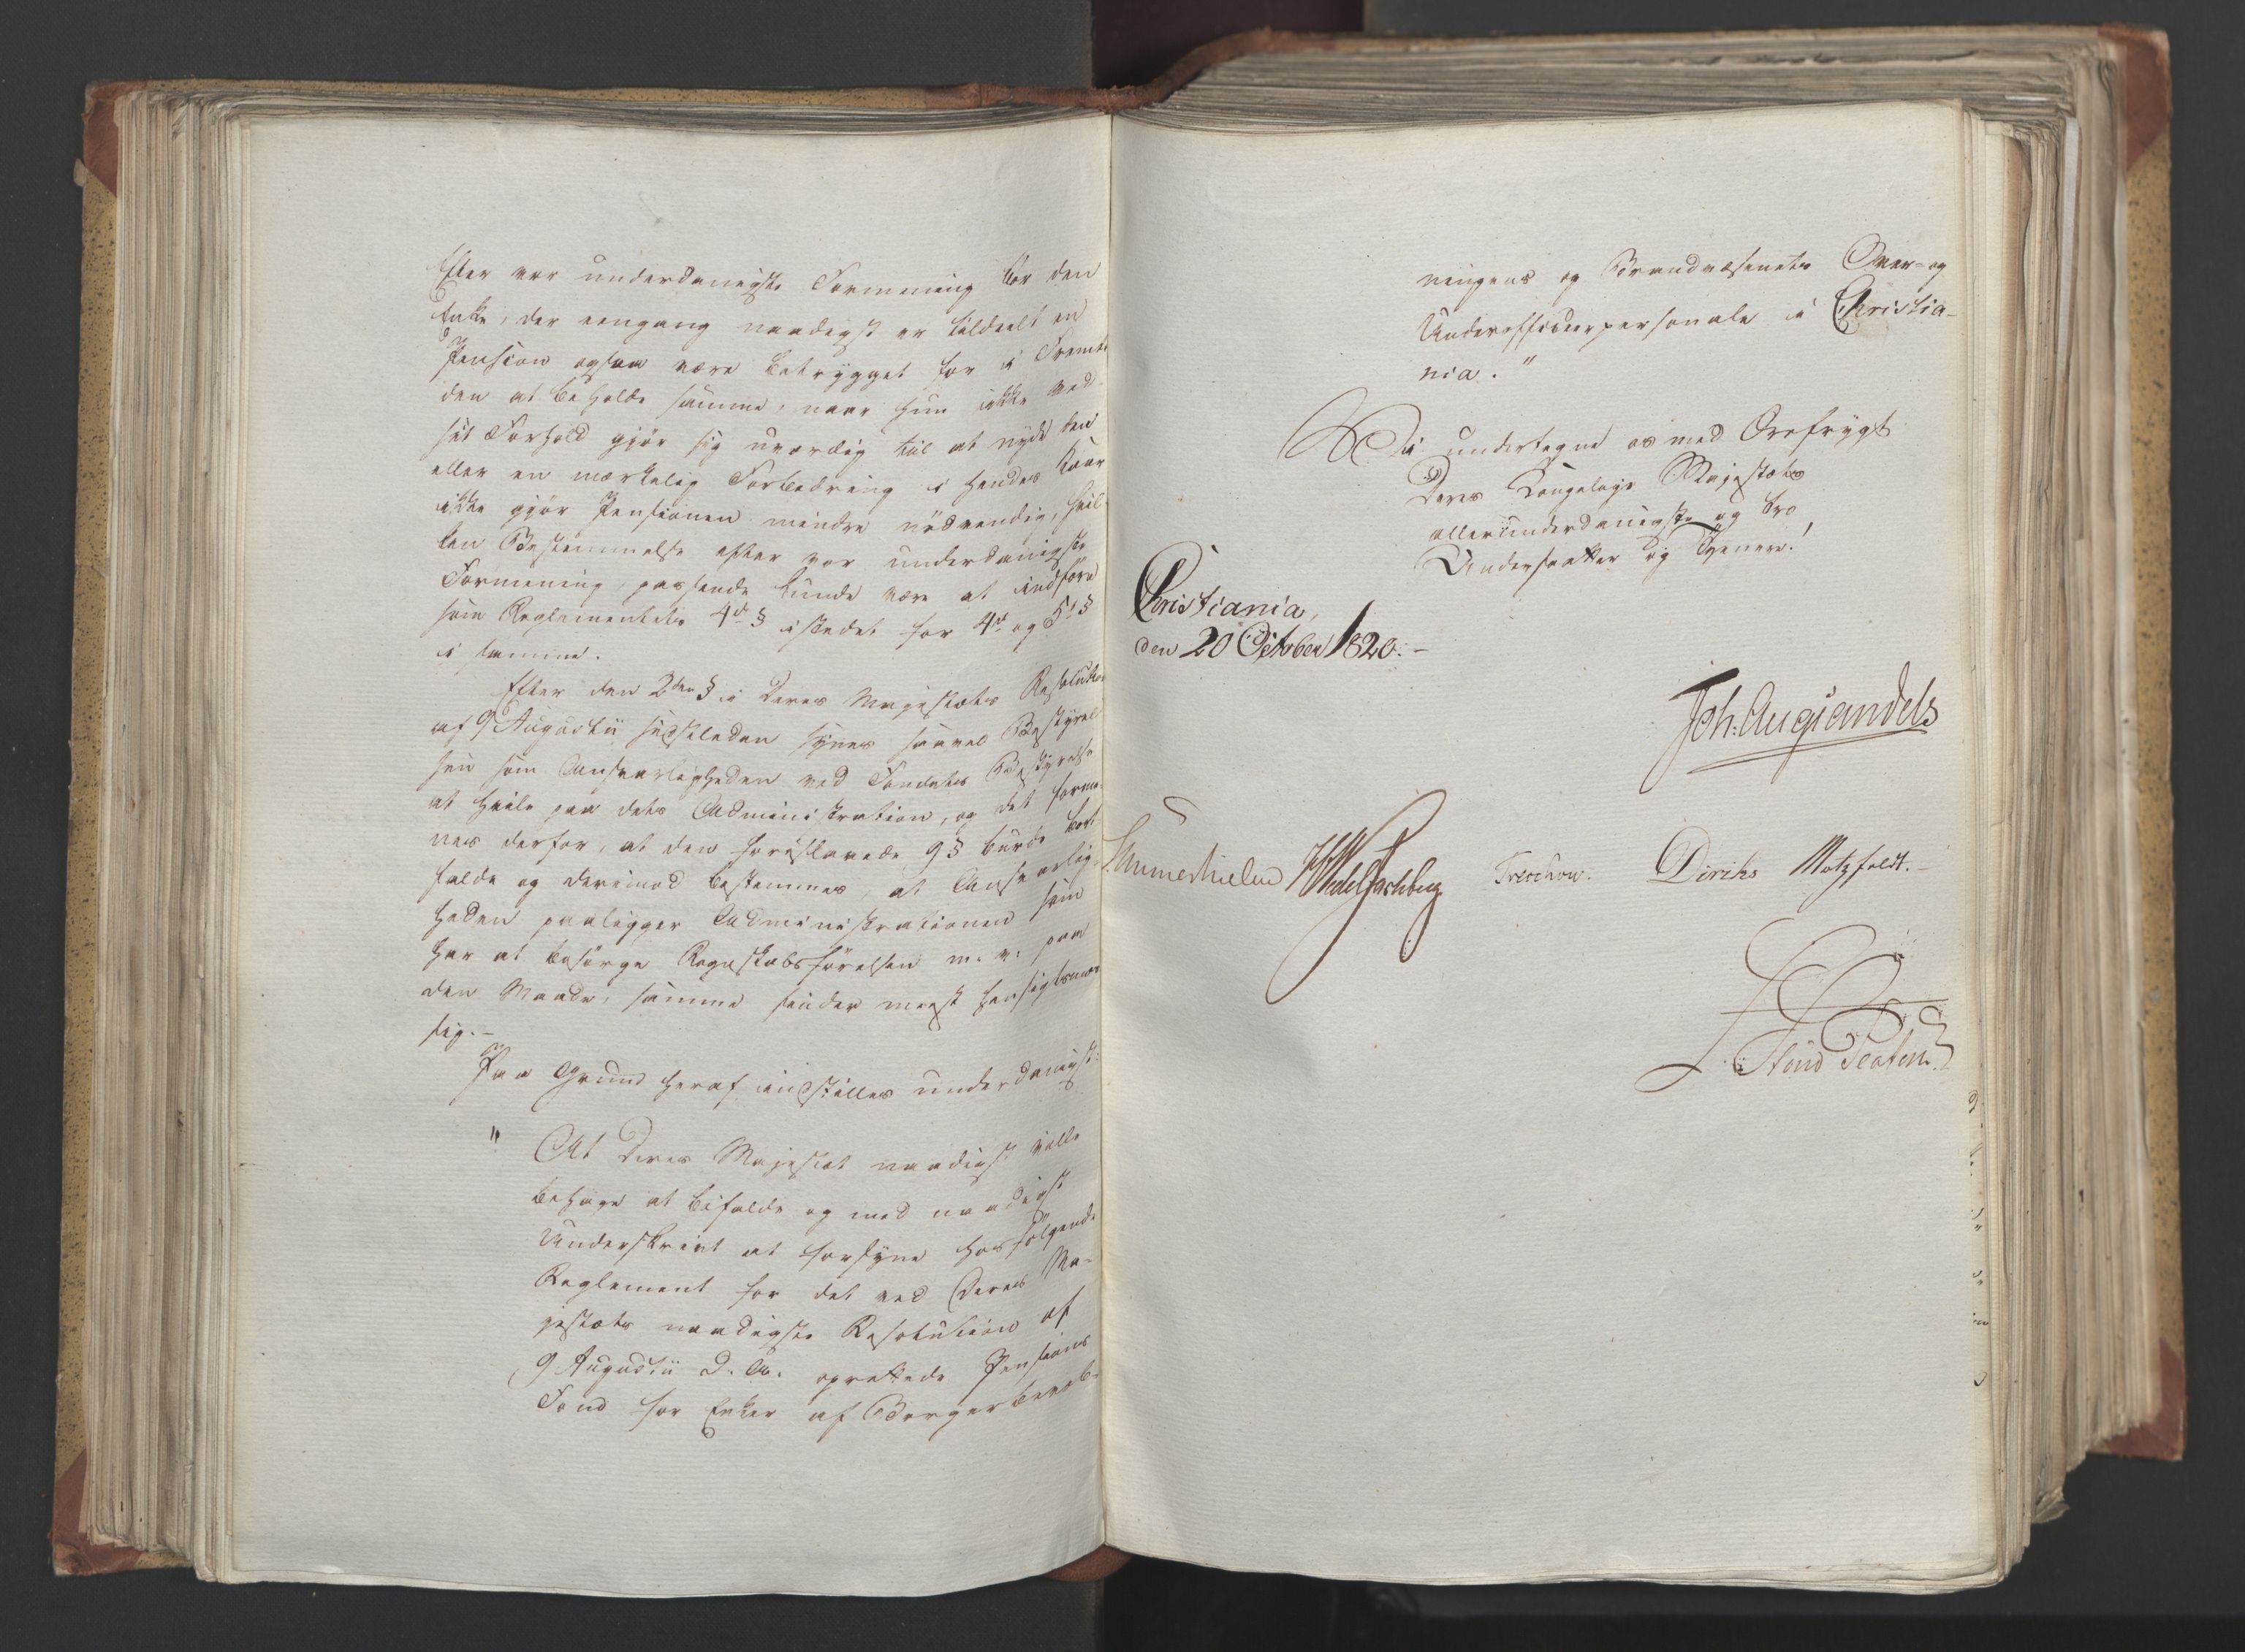 Efter vor underdanigste Formening bør den
Enke, der eengang naadigst er tildeelt en
Pension ogsaa være betrygget for i Fremti
den at beholde samme, naar hun ikke ved
sit Forhold gjør sig uværdig til at nyde den
eller en mærkelig Forbedring i hendes Kaar
ikke gjør Pensionen mindre nødvendig, hvil
ken Bestemmelse efter vor underdanigste
Formening, passende kunde være at indføre
som Reglementets 4de § istedet for 4de og 5te §
i samme.
Efter den 2den § i Deres Majestæts Resolution
af 9 Augustii sidstleden synes saavel Bestyrel
sen som Ansvarligheden ved Fondets Bestyrelse
at hvile paa dets Administration, og det forme
nes derfor, at den foreslaaede 9 § burde bort
falde og derimod bestemmes, at Ansvarlig
heden paaligger Administrationen som
har at besørge Regnskabsførelsen m. v. paa
den Maade, samme finder meest hensigtsmæs
sig.-
Paa Grund heraf indstilles underdanigst:
" At Deres Majestæt naadigst ville
behage at bifalde og med naadigst
Underskrivt at forsyne hosfølgende
Reglement for det ved Deres Ma-
jestæts naadigste Resolution af
9 Augustii d. A. oprettede Pensions
Fond for Enker af Borgerbevæb-
ningens og Brandvæsenets Over- og
Underofficierpersonale i Christia-
nia."
Vi undertegne os med Ærefrygt
Deres Kongelige Majestæts
allerunderdanigste og tro
Undersaatter og Tjenere!
Christiania,
den 20 October 1820.-
Joh: Aug Sandels
Sommerhielm HWedel Jarlsberg Treschow. Diriks Motzfeldt.-
Stoud Platou